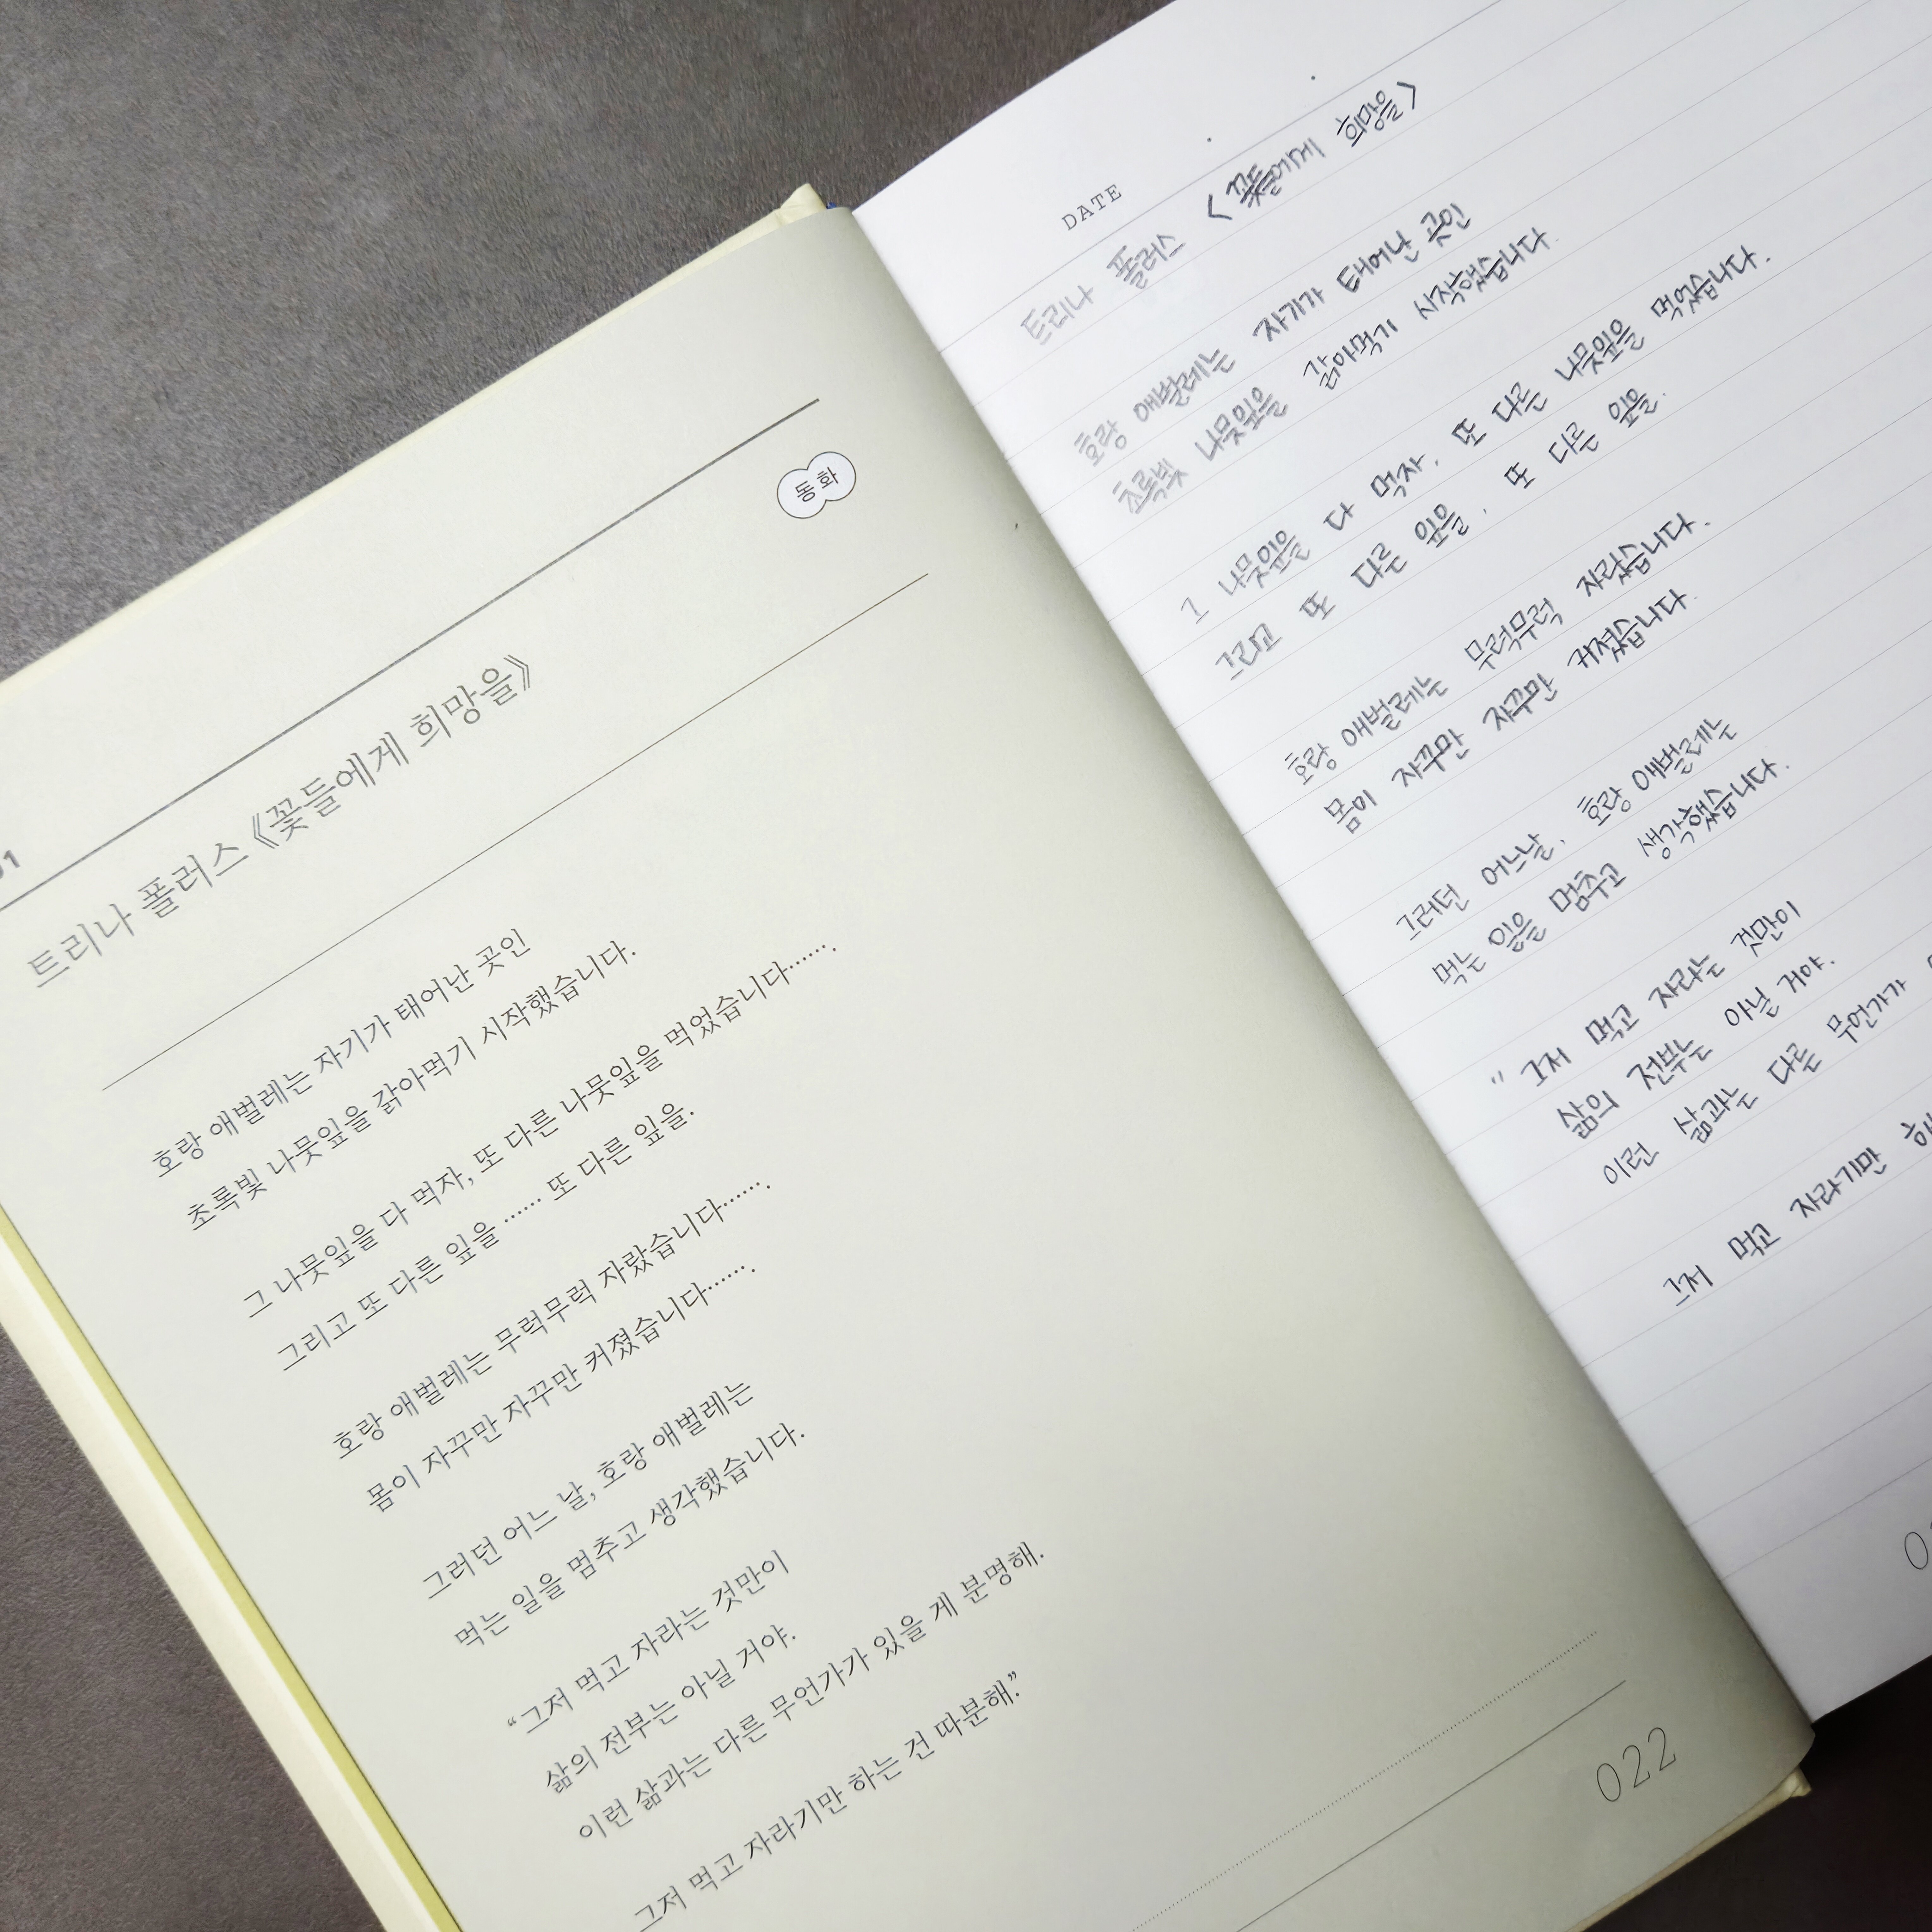 동화
트리나 폴러스 《꽃들에게 희망을》
호랑 애벌레는 자기가 태어난 곳인
초록빛 나뭇잎을 갉아먹기 시작했습니다.
그 나뭇잎을 다 먹자, 또 다른 나뭇잎을 먹었습니다…….
그리고 또 다른 잎을 …… 또 다른 잎을.
호랑 애벌레는 무럭무럭 자랐습니다…….
몸이 자꾸만 자꾸만 커졌습니다…….
그러던 어느 날, 호랑 애벌레는
먹는 일을 멈추고 생각했습니다.
“그저 먹고 자라는 것만이
삶의 전부는 아닐 거야.
이런 삶과는 다른 무언가가 있을 게 분명해.
그저 먹고 자라기만 하는 건 따분해.”
022
DATE
트리나 폴러스 <꽃들에게 희망을>
호랑 애벌레는 자기가 태어난 곳인
초록빛 나뭇잎을 갉아먹기 시작했습니다.
그 나뭇잎을 다 먹자, 또 다른 나뭇잎을 먹었습니다.
그리고 또 다른 잎을, 또 다른 잎을.
호랑 애벌레는 무럭무럭 자랐습니다.
몸이 자꾸만 자꾸만 커졌습니다.
그러던 어느날, 호랑 애벌레는
먹는 일을 멈추고 생각했습니다.
"그저 먹고 자라는 것만이
삶의 전부는 아닐 거야.
이런 삶과는 다른 무언가가
그저 먹고 자라기만